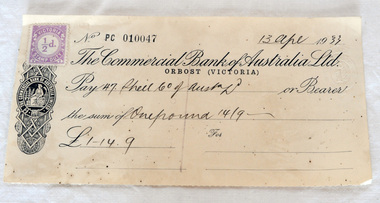 ½d.
No PC 010047
13 Apl 1933
The Commercial Bank of Australia Ltd.
ORBOST (VICTORIA)
Pay Shell Co of Aust or Bearer
the sum of One pound 14/9
£1-14.9
For